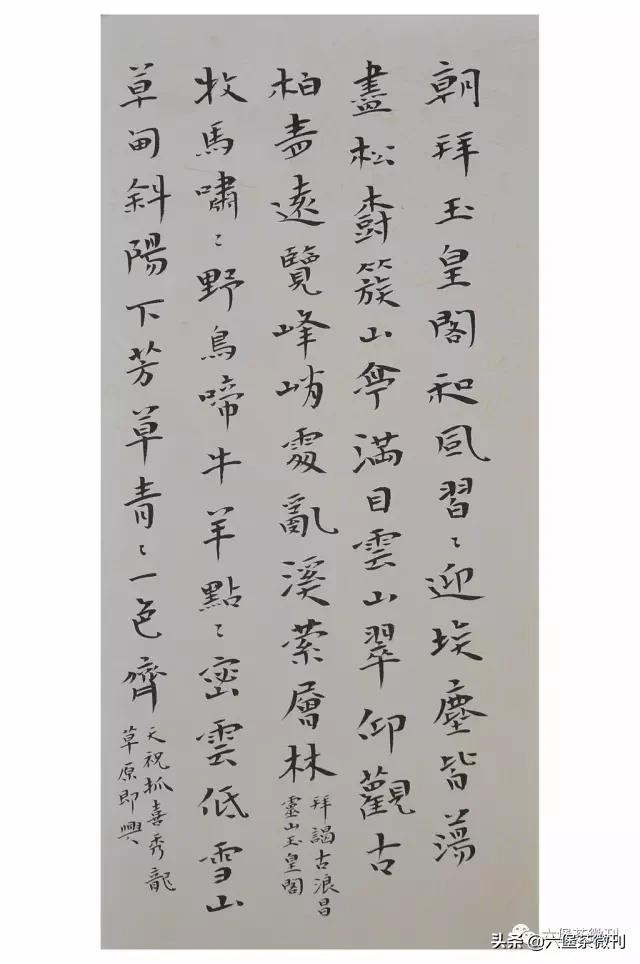 朝拜玉皇閣和風習〻迎埃塵皆蕩
盡松樹簇山亭滿目雲山翠仰觀古
柏青遠覽峰峭處亂溪萦層林
拜謁古浪昌
靈山玉皇閣
牧馬嘯〻野鳥啼牛羊點〻密雲低雪山
草甸斜陽下芳草青〻一色齊
天祝抓喜秀龍
草原即興
六堡茶微刊
头条@六堡茶微刊